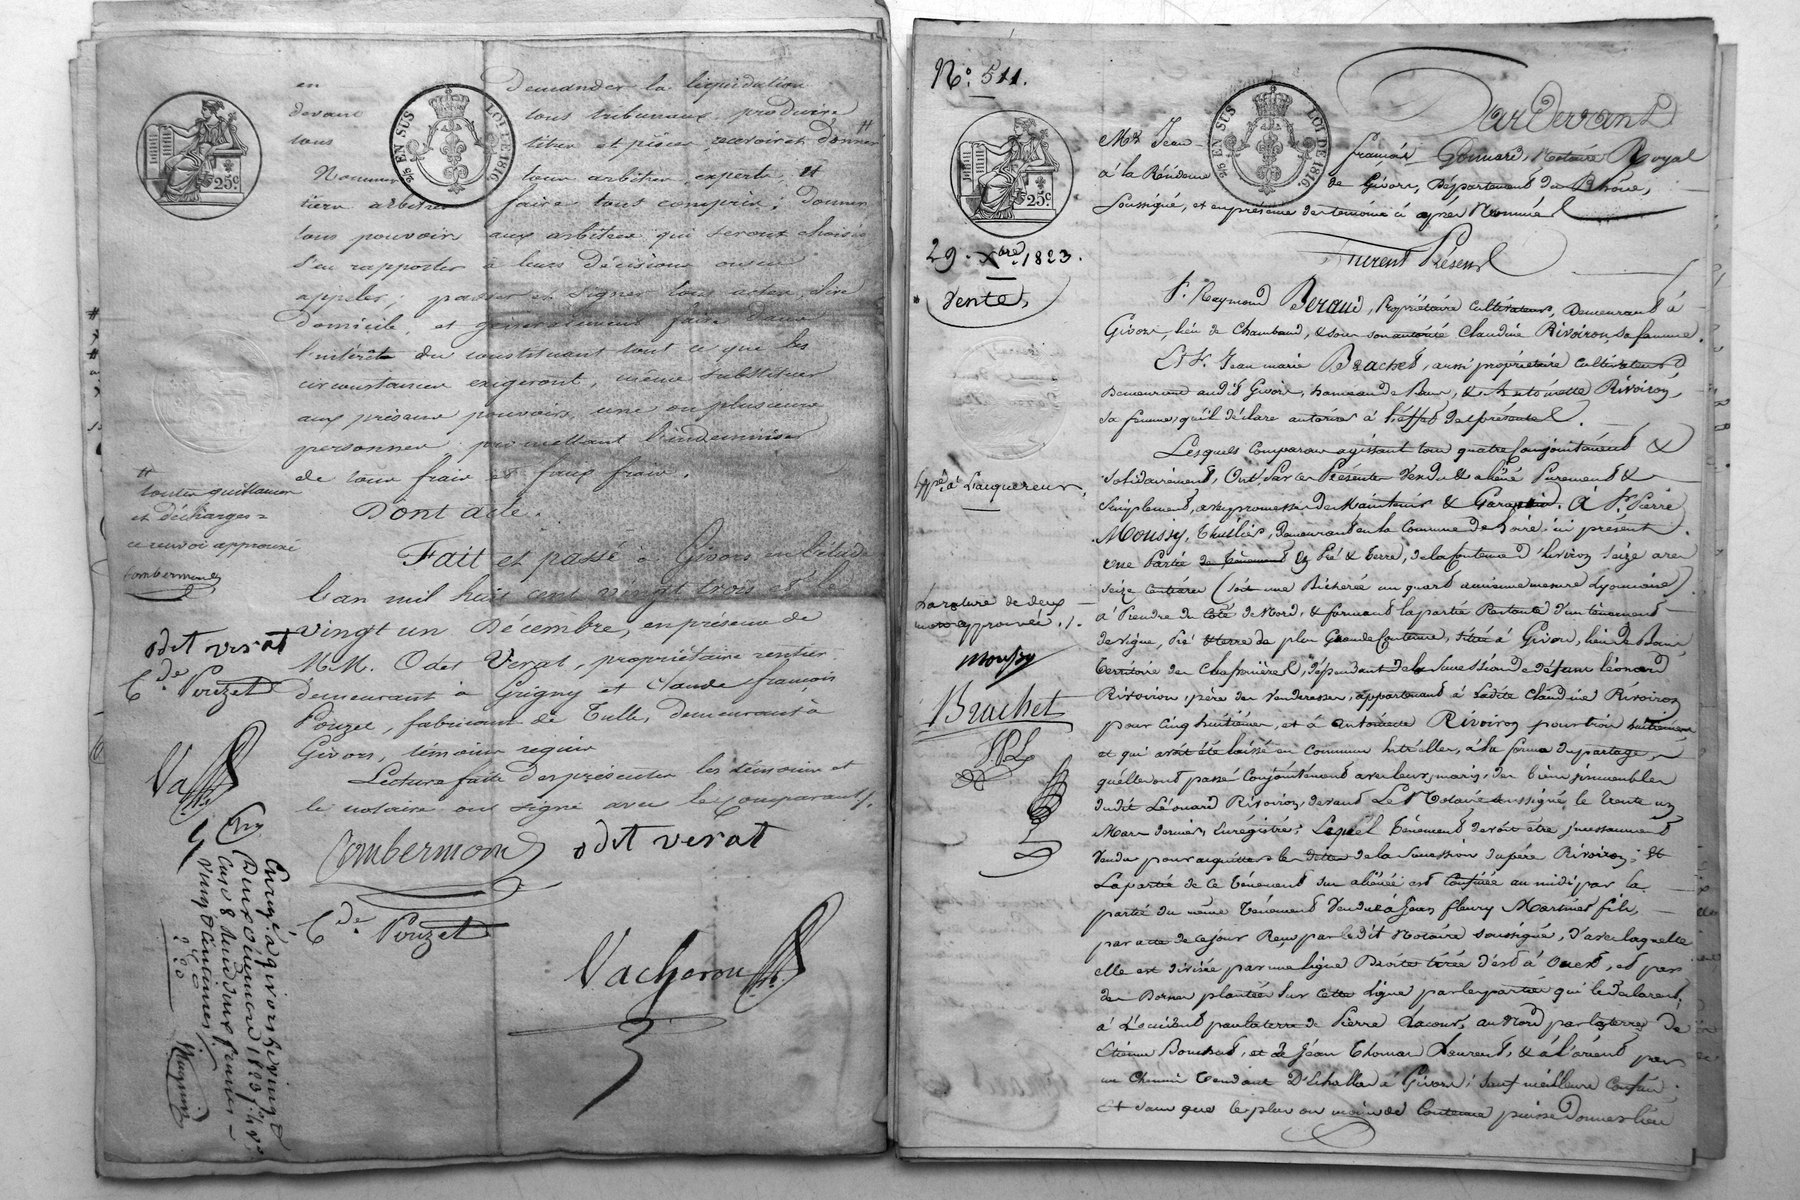 en Demander la liquidation
devant tous tribunaux, produire
tous titres et pièces, recevoir et donner #
Nommer tous arbitres, experts, et
tiers arbitres faire tous compris; donner
tous pouvoirs aux arbitres qui seront choisis
s'en rapporter à leurs décisions ou en
appeler; passer et signer tous actes, élire
domicile, et généralement faire dans
l'intérêt du constituant tout ce que les
circonstances exigeront, même substituer
aux présens pouvoirs, une ou plusieurs
personnes, promettant l'indemniser
de tous frais et faux frais.
Dont acte.
Fait et passé à Givors en l'étude
l'an mil huit cent vingt trois et le
vingt un Décembre, en présence de
M.M. Odet Verat, propriétaire rentier
demeurant à Grigny et Claude françois
Pouzet, fabricant de Tulle, demeurant à
Givors, témoins requis
Lecture faite des présentes les témoins et
le notaire ont signé avec le comparant.
Combermon
odet verat
Cde Pouzet
Vacheron
25c
25c EN SUS
LOI DE 1816.
#
toutes quittances
et décharges =
ce renvoi approuvé
Combermon
odet verat
Cde Pouzet
Va
Enregé à givors le vingt
Deux décembre 1823
Case 8 Reçu deux francs
vingt centimes
2 20
N° 511.
25c
25c EN SUS
LOI DE 1816.
29 Xbre 1823.
Vente,
Pardevant
Me Jean françois Gonnard, Notaire Royal
à la Résidence de Givors, Département du Rhône,
Soussigné, et en présence des témoins ci après Nommés
Furent Présens
Sr. Reymond Beraud, Propriétaire Cultivateur, Demeurant à
Givors, lieu de Chambaud, & sous son autorité Claudine Rivoiron, sa femme.
Et Sr. Jean marie Brachet, aussi propriétaire Cultivateur
Demeurant audit Givors, hameau de Bans, & Antoinette Rivoiron
sa femme, qu'il déclare autoriser à l'effet des présentes.
Lesquels Comparans agissant tous quatre Conjointement &
Solidairement, Ont, Par ces Présentes Vendu & aliéné Purement &
Simplement, avec promesse de Maintenir & Garantir. À Sr. Pierre
Moussy, Thuilier, demeurant en la Commune de Loire, ici présent.
une Partie de Pré & Terre, de la Contenue d'Environ Seize ares
Seize Centiares (soit une Bicherée un quart ancienne mesure Lyonnaise)
à Prendre du Côté de Nord, & formant la partie d'un tènement
de vigne, Pré & terre de plus Grande Contenue, situé à Givors, lieu de Bans,
territoire des Chassonnières, dépendant de la Succession de défunt Léonard
Rivoiron, père des Venderesses, appartenant à Ladite Claudine Rivoiron
pour Cinq huitièmes, et à antoinette Rivoiron pour trois huitièmes
et qui avait été laissé en Commun entr'elles, à la forme du partage,
qu'elles ont passé Conjointement avec leurs maris, des biens immeubles
dudit Léonard Rivoiron, devant Le Notaire soussigné, le trente un
Mars dernier, Enregistré; Lequel tènement devait être
Vendu pour acquitter les dettes de la Succession du père Rivoiron; &
La partie de ce tènement Sus aliénée est Confinée au midi par la
partie du même tènement Vendue à Jean fleury Martinet fils,
par acte de ce jour Reçu par ledit Notaire soussigné, d'avec laquelle
elle est divisée par une ligne Droite tirée d'est à Ouest, et par
des Bornes plantées Sur cette Ligne par les parties qui le déclarent;
à L'occident par la terre de Pierre Lacour, au Nord par la terre de
Etienne Bouchut, et de Jean Thomas Laurent, & à l'orient par
un Chemin tendant D'Echallas à Givors; sauf meilleurs Confins
Et sans que le plus ou moins de Contenue puisse Donner lieu
Exp. à L'acquereur,
La rature de deux
mots approuvée ./.
Moussy
Brachet